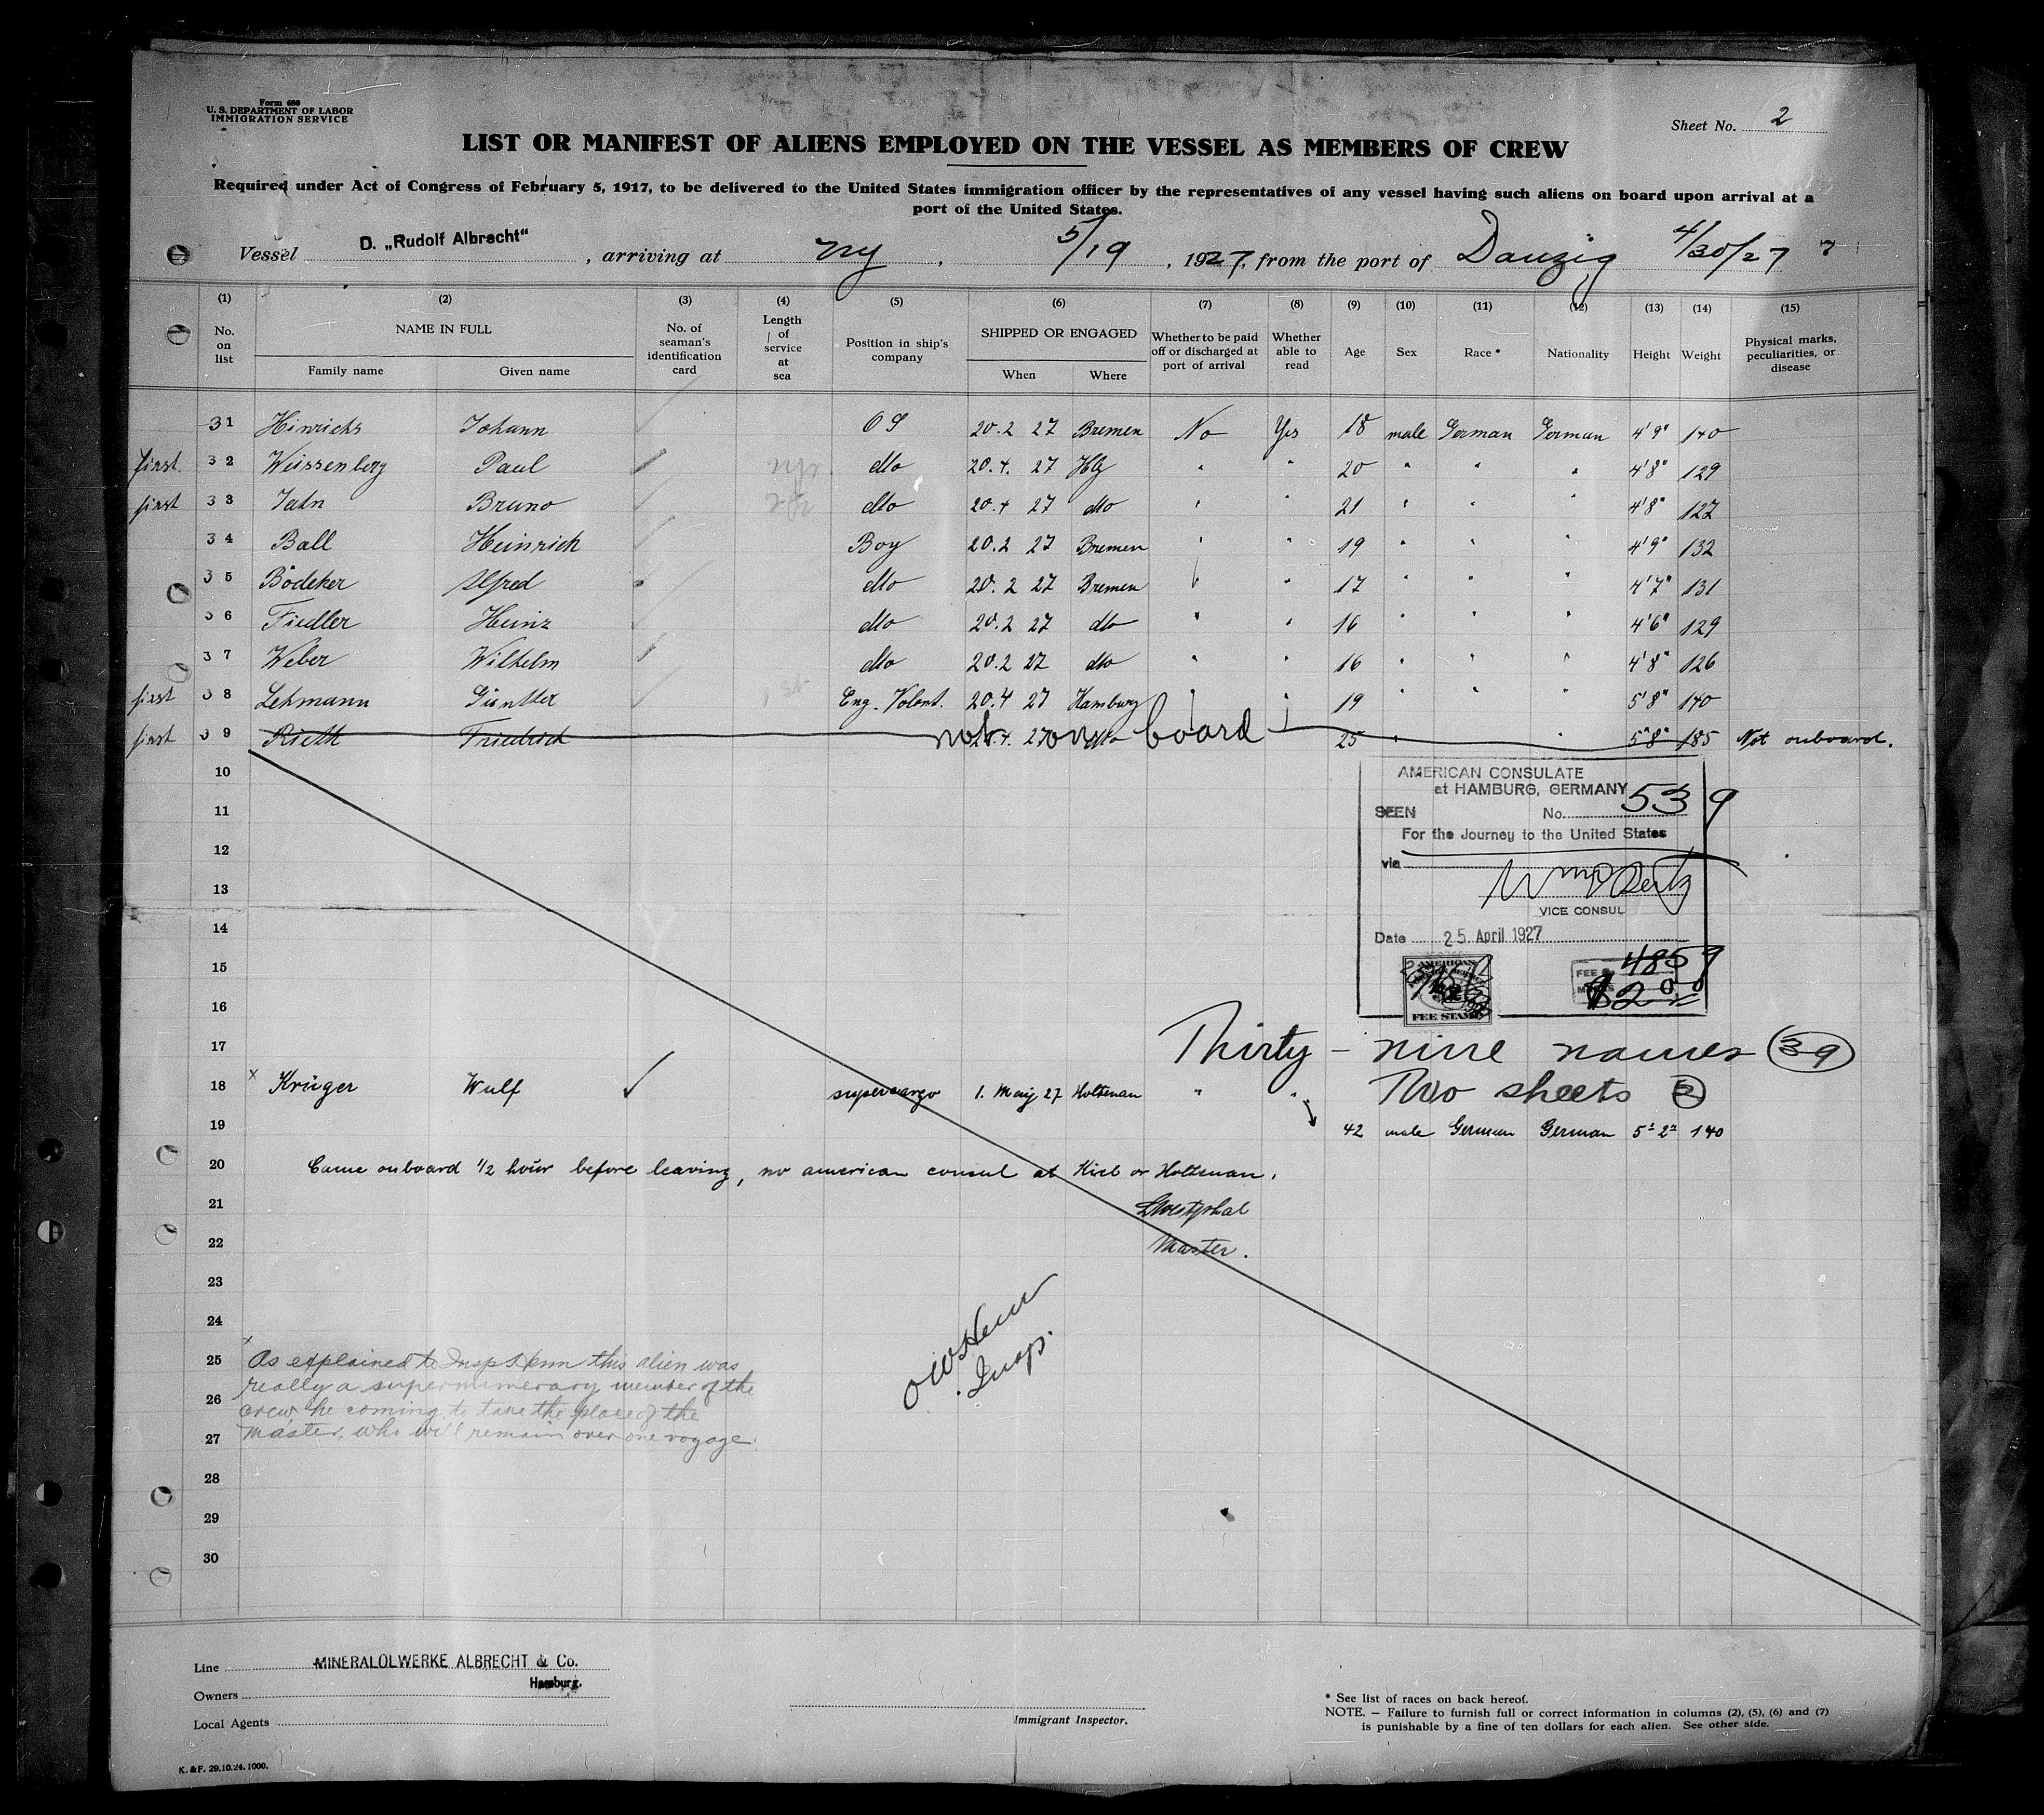 Form 680
U. S. DEPARTMENT OF LABOR
IMMIGRATION SERVICE
Sheet No. 2
LIST OR MANIFEST OF ALIENS EMPLOYED ON THE VESSEL AS MEMBERS OF CREW
Required under Act of Congress of February 5, 1917, to be delivered to the United States immigration officer by the representatives of any vessel having such aliens on board upon arrival at a
port of the United States.
Vessel D. „Rudolf Albrecht“, arriving at NY, 5/19, 1927, from the port of Danzig 4/30/27 7
(1) (2) (3) (4) (5) (6) (7) (8) (9) (10) (11) (12) (13) (14) (15)
No. on list NAME IN FULL Family name Given name No. of seaman's identification card Length of service at sea Position in ship's company SHIPPED OR ENGAGED When Where Whether to be paid off or discharged at port of arrival Whether able to read Age Sex Race * Nationality Height Weight Physical marks, peculiarities, or disease
31 Hinrichs Johann OS 20.2 27 Bremen No Yes 18 male German German 4'9" 140
first 32 Weissenberg Paul dto 20.4. 27 Hbg " " 20 " " " 4'8" 129
first 33 Jahn Bruno dto 20.4 27 dto " " 21 " " " 4'8" 127
34 Ball Heinrich Boy 20.2 27 Bremen " " 19 " " " 4'9" 132
35 Bödeker Alfred dto 20.2 27 Bremen " " 17 " " " 4'7" 131
36 Fiedler Heinz dto 20.2 27 dto " " 16 " " " 4'6" 129
37 Weber Wilhelm dto 20.2 27 dto " " 16 " " " 4'8" 126
first 38 Lehmann Günther Eng. Volont. 20.4 27 Hamburg " " 19 " " " 5'8" 140
first 39 Rieth Friedrich 20.4. 27 dto not on board 25 " " 5"8" 185 Not onboard.
10
11
12
13
14
15
16
AMERICAN CONSULATE
at HAMBURG, GERMANY
SEEN No. 539
For the Journey to the United States
via
VICE CONSUL
Date 25. April 1927
AMERICAN
FEE STAMP
FEE $ 4859
$2.00
17 Thirty-nine names (39)
18 x Krüger Wulf ✓ supercargo 1. May 27 Holtenau " " Two sheets 2
19 42 male German German 5' 2" 140
20 Came onboard 1/2 hour before leaving, no american consul at Kiel or Holtenau.
21 Westphal
22 Master.
23
24
OW Henn
Insp.
25 x As explained to Insp Henn this alien was
really a supernumerary member of the
26 crew, he coming to take the place of the
27 master, who will remain over one voyage.
28
29
30
Line MINERALOLWERKE ALBRECHT & Co.
Hamburg.
Owners
Local Agents
Immigrant Inspector.
* See list of races on back hereof.
NOTE. — Failure to furnish full or correct information in columns (2), (5), (6) and (7)
is punishable by a fine of ten dollars for each alien. See other side.
K. & F. 29.10.24.1000.